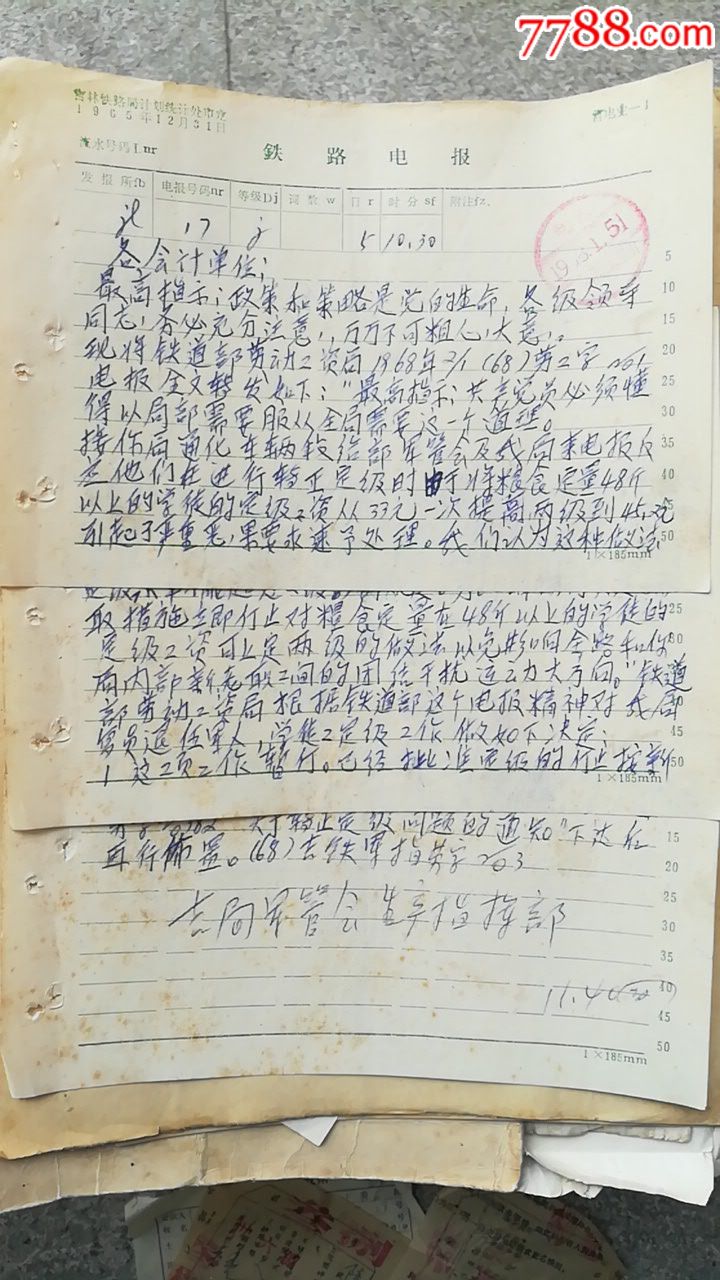 7788.com
吉林铁路局计划统计处市定
1965年12月31日
流水号码Lnr
鉄路电报
发报所fb 电报号码nr 等级Dj 词数w 日r 时分sf 附注fz
17 5 10.30
各会计单位:
最高指示:政策和策略是党的生命,各级领导
同志,务必充分注意,万万不可粗心大意。
现将铁道部劳动工资局1968年2/1(68)劳工字
电报全文转发如下:"最高指示:共产党员必须懂
得以局部需要服从全局需要这一个道理。
接你局通化车辆段给部军管会及我局来电报反
他们在进行转正定级时由于将粮食定量48斤
以上的学徒的定级工资从33元一次提高两级到
引起了严重意果要求速予处理。我们认为这种做法
1×185mm
取措施立即停止对粮食定量在48斤以上的学徒的
定级工资可上定两级的做法以免影响全路和你
局内部新老职工间的团结干扰运动大方向。"铁道
部劳动工资局根据铁道部这个电报精神对我局
复员退伍军人,学徒工定级工作做如下决定:
1 这工项工作暂停。已经批准定级的停止按新
1×185mm
关于转正定级问题的通知"下达后
再行佈置。(68)吉铁军指劳字203
吉局军管会生产指挥部
11.40
1×185mm
5
10
15
20
25
30
35
40
45
50